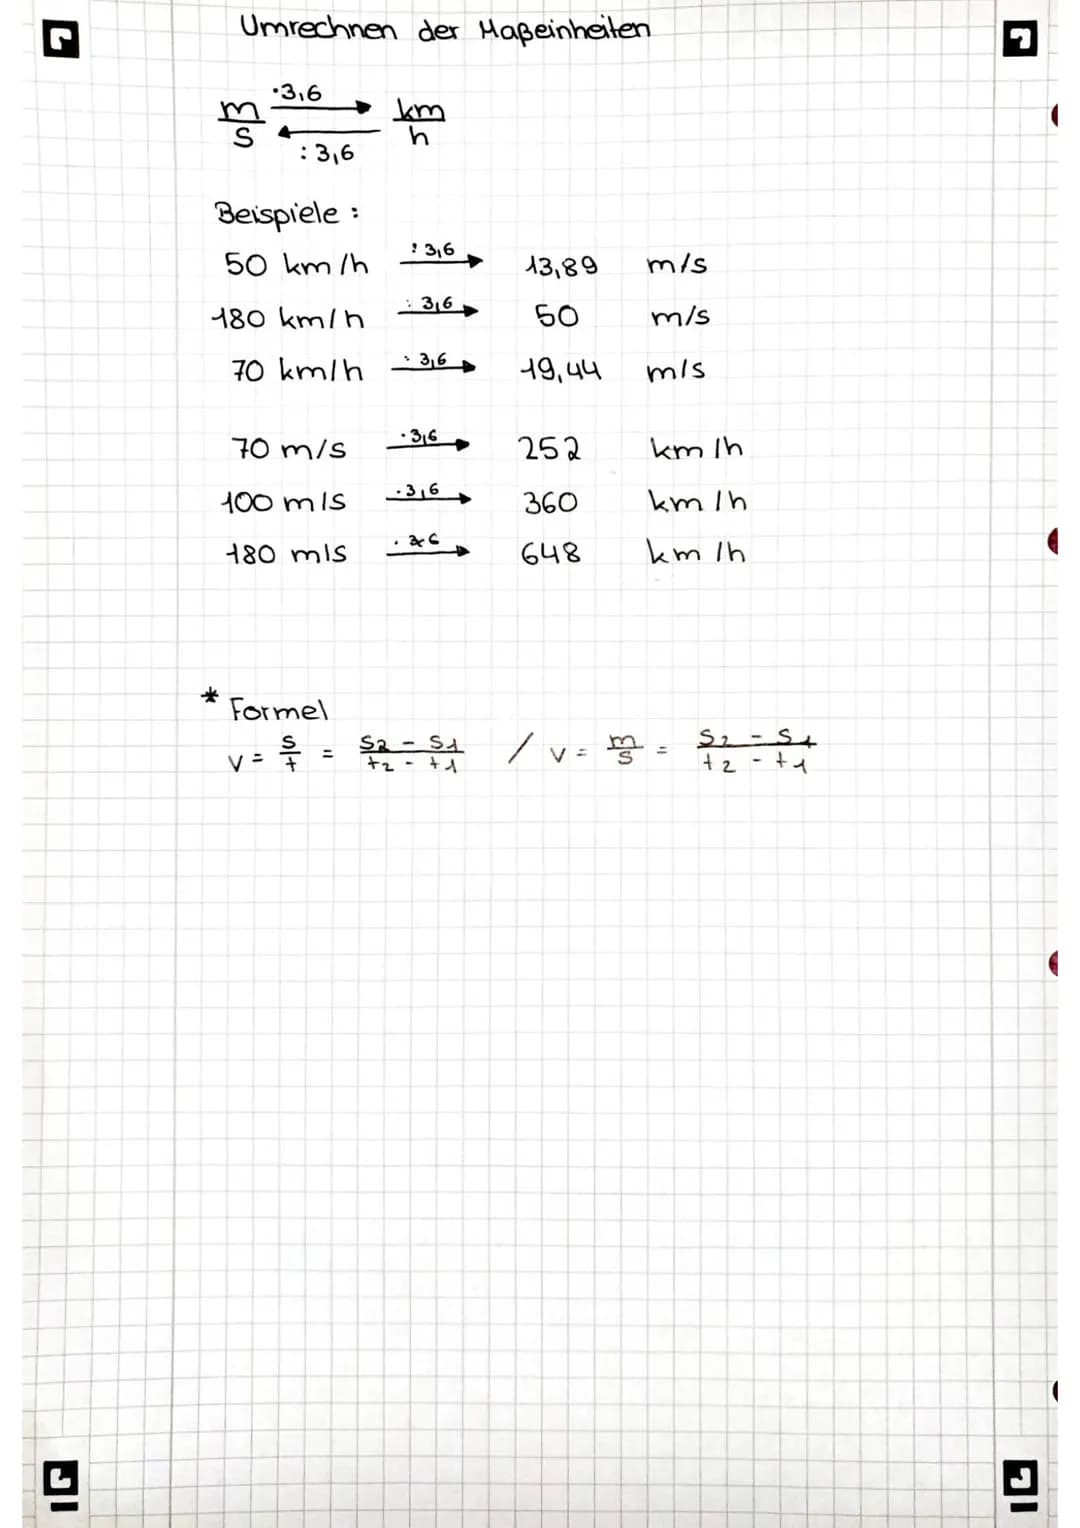 Umrechnen der Maßeinheiten
m/s ·3,6 → km/h
← : 3,6
Beispiele :
50 km/h : 3,6 → 13,89 m/s
180 km/h : 3,6 → 50 m/s
70 km/h : 3,6 → 19,44 m/s
70 m/s · 3,6 → 252 km/h
100 m/s · 3,6 → 360 km/h
180 m/s · 3,6 → 648 km/h
* Formel
v = s/t = (s2 - s1)/(t2 - t1) / v = m/s = (s2 - s1)/(t2 - t1)